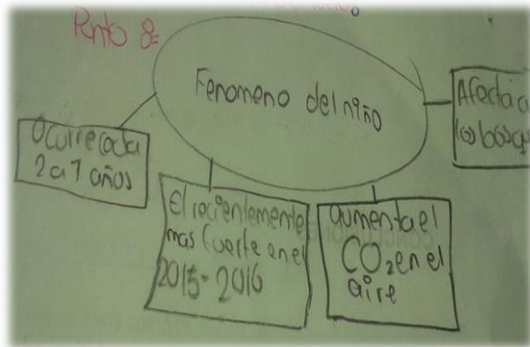 Punto 8:
Fenomeno del niño
Ocurre cada
2 a 7 años
El recientemente
mas fuerte en el
2015-2016
aumenta el
CO2 en el
aire
Afecta a
los bosq